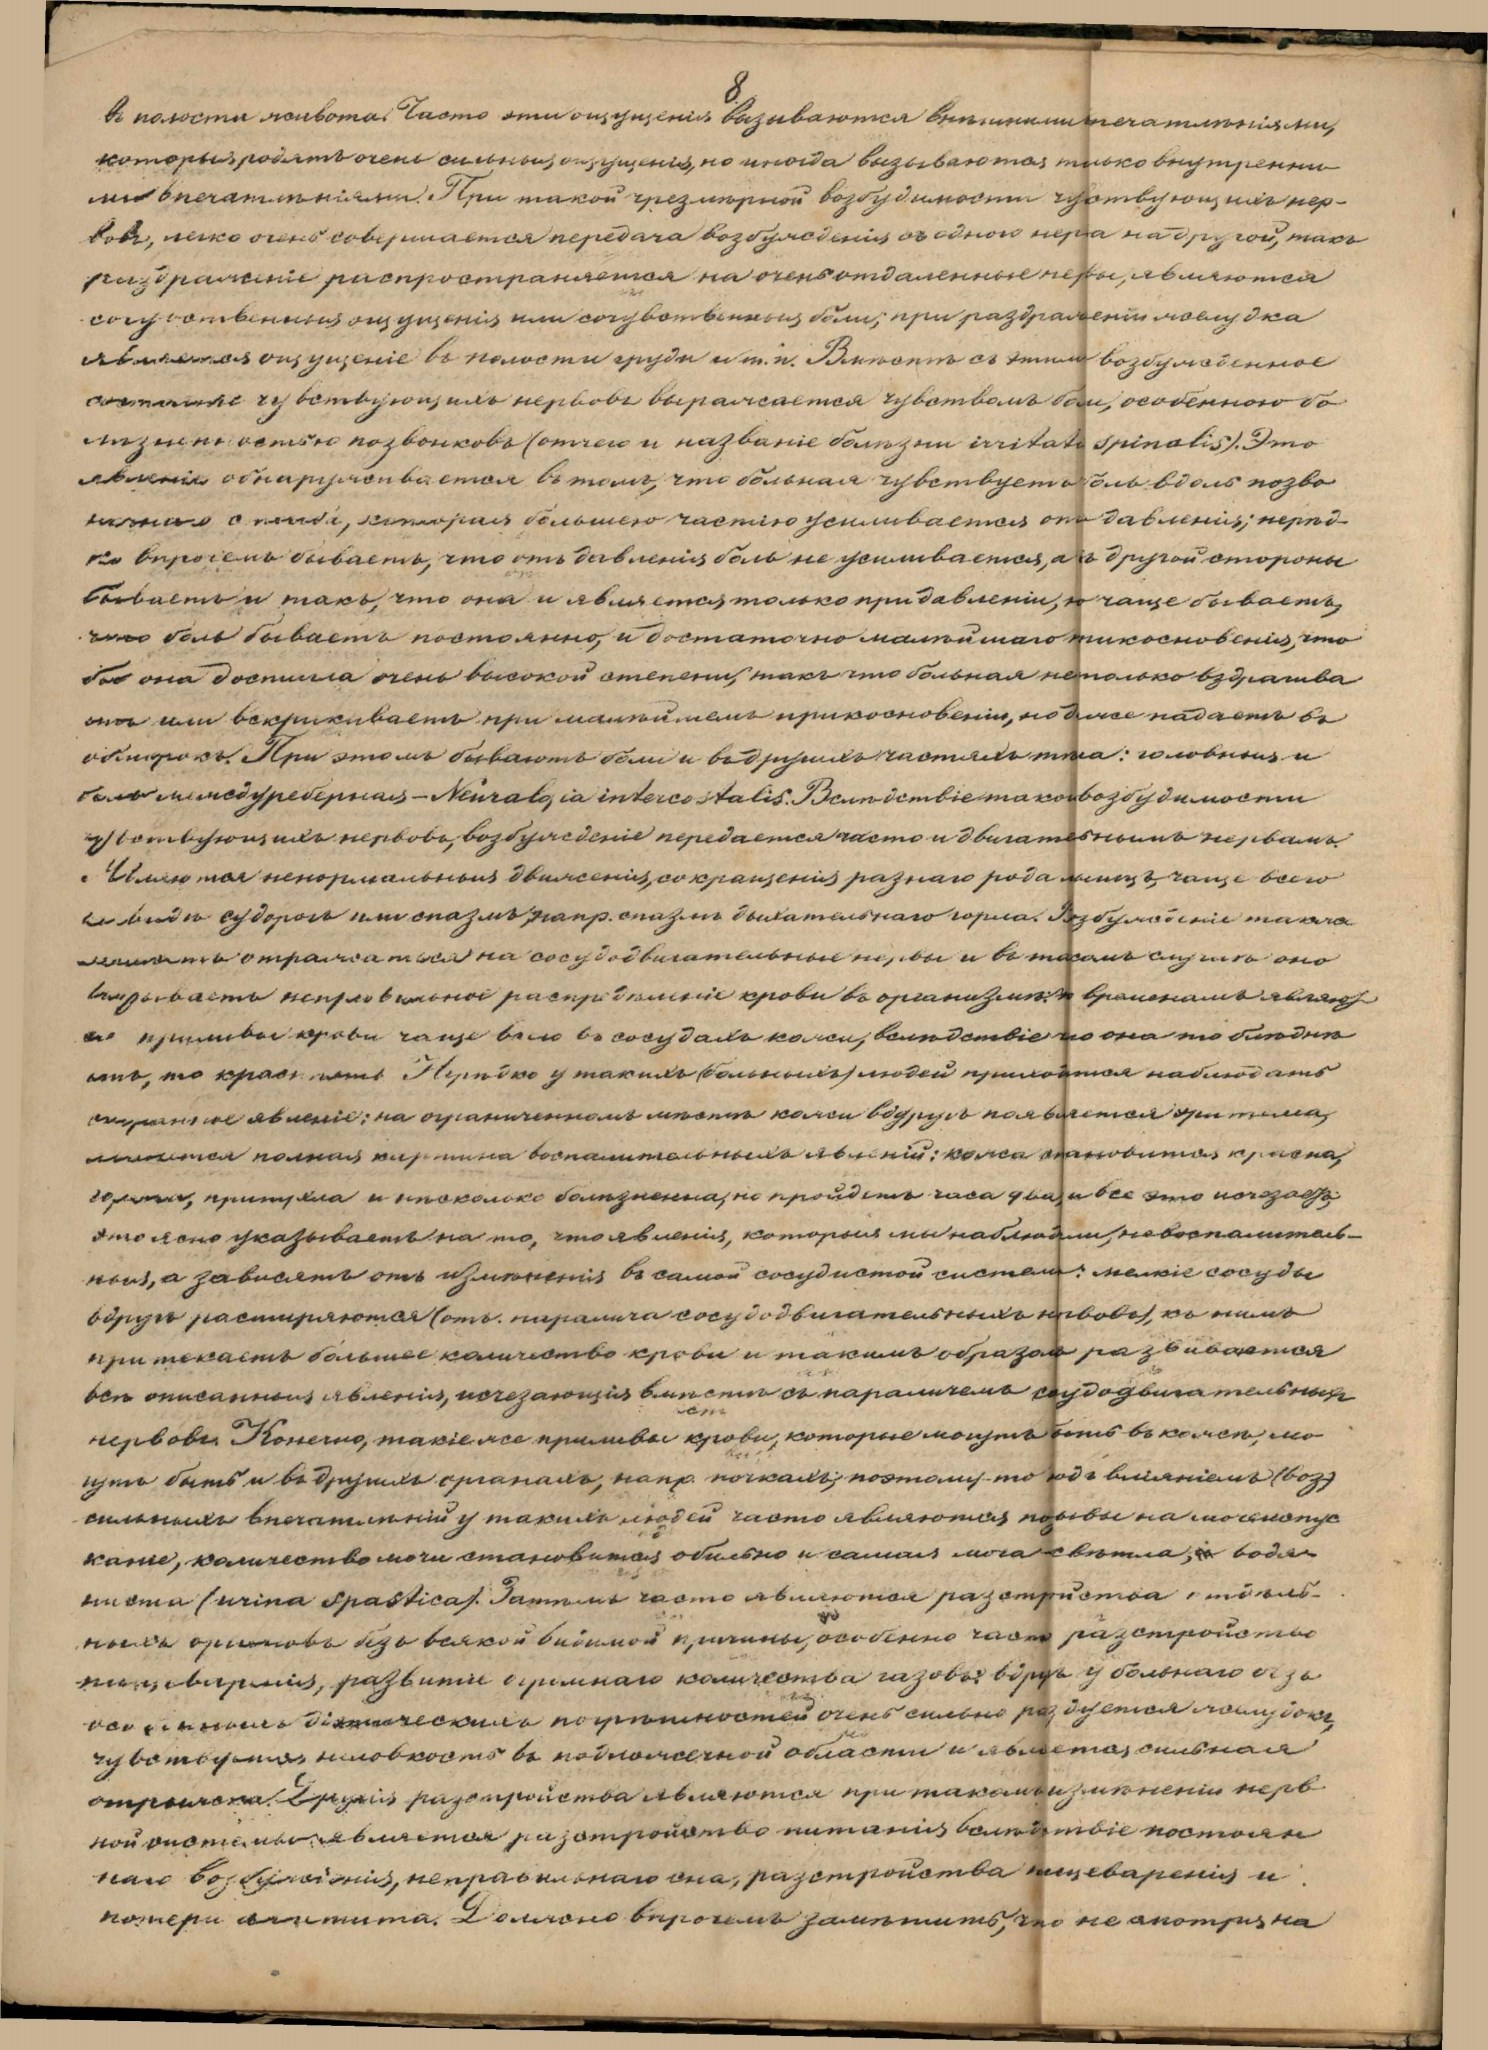 8
въ полости живота. Часто эти ощущенія вызываются внѣшними впечатлѣніями,
которыя родятъ очень сильныя ощущенія, но иногда вызываются только внутренни
ми впечатлѣніями. При такой чрезмѣрной возбудимости чувствующихъ нер-
вовъ, легко очень совершается передача возбужденія съ одного нерва на другой, такъ
раздраженіе распространяется на очень отдаленные нервы, являются
сочувственныя ощущенія или сочувственныя боли; при раздраженіи желудка
является ощущеніе въ полости груди и т. п. Вмѣстѣ съ этимъ возбужденное
состояніе чувствующихъ нервовъ выражается чувствомъ боли, особенною бо
лѣзненностью позвонковъ (отчего и названіе болѣзни irritatio spinalis). Это
явленіе обнаруживается въ томъ, что больная чувствуетъ боль вдоль позво
ночнаго столба, которая большею частію усиливается отъ давленія; нерѣд-
ко впрочемъ бываетъ, что отъ давленія боль не усиливается, а съ другой стороны
бываетъ и такъ, что она и является только при давленіи, но чаще бываетъ,
что боль бываетъ постоянно, и достаточно малѣйшаго прикосновенія, что
бы она достигла очень высокой степени, такъ что больная не только вздрагива
етъ или вскрикиваетъ при малѣйшемъ прикосновеніи, но даже падаетъ въ
обморокъ. При этомъ бываютъ боли и въ другихъ частяхъ тѣла: головныя и
боль междуреберная – Neuralgia intercostalis. Вслѣдствіе такой возбудимости
чувствующихъ нервовъ, возбужденіе передается часто и двигательнымъ нервамъ.
Являются ненормальныя движенія, сокращенія разнаго рода мышцъ, чаще всего
въ видѣ судорогъ или спазмъ, напр. спазмъ дыхательнаго горла. Возбужденіе также
можетъ отражаться на сосудодвигательные нервы и въ такомъ случаѣ оно
вызываетъ неправильное распредѣленіе крови въ организмѣ: временамъ являют
ся приливы крови чаще всего въ сосудахъ кожи, вслѣдствіе чего она то блѣднѣ
етъ, то краснѣетъ. Нерѣдко у такихъ (больныхъ) людей приходится наблюдать
странное явленіе: на ограниченномъ мѣстѣ кожи вдругъ появляется эритема,
является полная картина воспалительныхъ явленій: кожа становится красна,
горяча, припухла и нѣсколько болѣзненна, но пройдетъ часа два, и все это исчезаетъ,
это ясно указываетъ на то, что явленія, которыя мы наблюдали, не воспалитель-
ныя, а зависятъ отъ измѣненія въ самой сосудистой системѣ: мелкіе сосуды
вдругъ расширяются (отъ паралича сосудодвигательныхъ нервовъ), къ нимъ
притекаетъ большее количество крови и такимъ образомъ развиваются
всѣ описанныя явленія, исчезающія вмѣстѣ съ параличемъ сосудодвигательныхъ
нервовъ. Конечно, такіе же приливы крови, которые могутъ быть въ кожѣ, мо
гутъ быть и въ другихъ органахъ, напр. почкахъ; поэтому-то подъ вліяніемъ (воз)
сильныхъ впечатлѣній у такихъ людей часто являются позывы на мочеиспус
каніе, количество мочи становится обильно и самая моча свѣтла, водя
ниста (urina spastica). Затѣмъ часто являются разстройства отдѣль-
ныхъ органовъ безъ всякой видимой причины, особенно часто разстройство
пищеваренія, развитіе огромнаго количества газовъ: вдругъ у больнаго безъ
особенныхъ діэтическихъ погрѣшностей очень сильно раздуется желудокъ,
чувствуется неловкость въ подложечной области и является сильная
отрыжка. Другія разстройства являются при такомъ измѣненіи нерв
ной системы: является разстройство питанія вслѣдствіе постоян
наго возбужденія, неправильнаго сна, разстройства пищеваренія и
потери аппетита. Должно впрочемъ замѣтить, что не смотря на